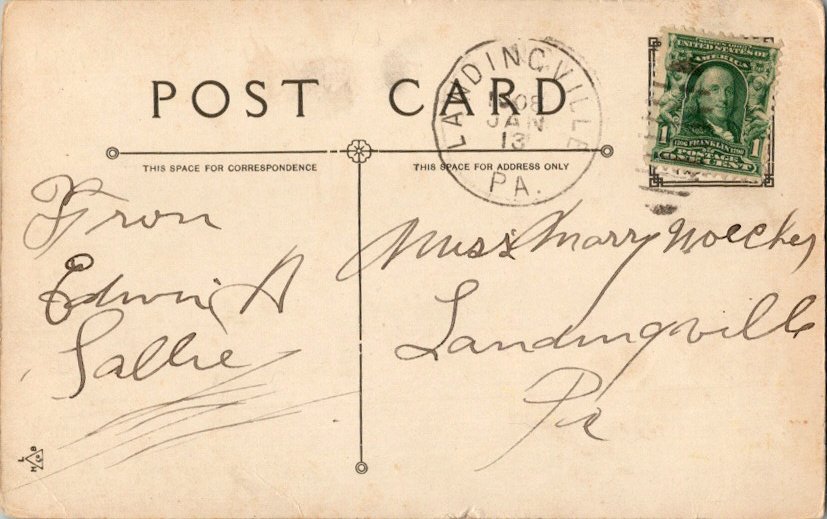 POST CARD
THIS SPACE FOR CORRESPONDENCE
THIS SPACE FOR ADDRESS ONLY
LANDINGVILLE
08
JAN
13
PA.
UNITED STATES OF
AMERICA
1 FRANKLIN 1
POSTAGE
ONE CENT
From
Edwin A
Sallie
Miss Mary Noecker
Landingville
Pa